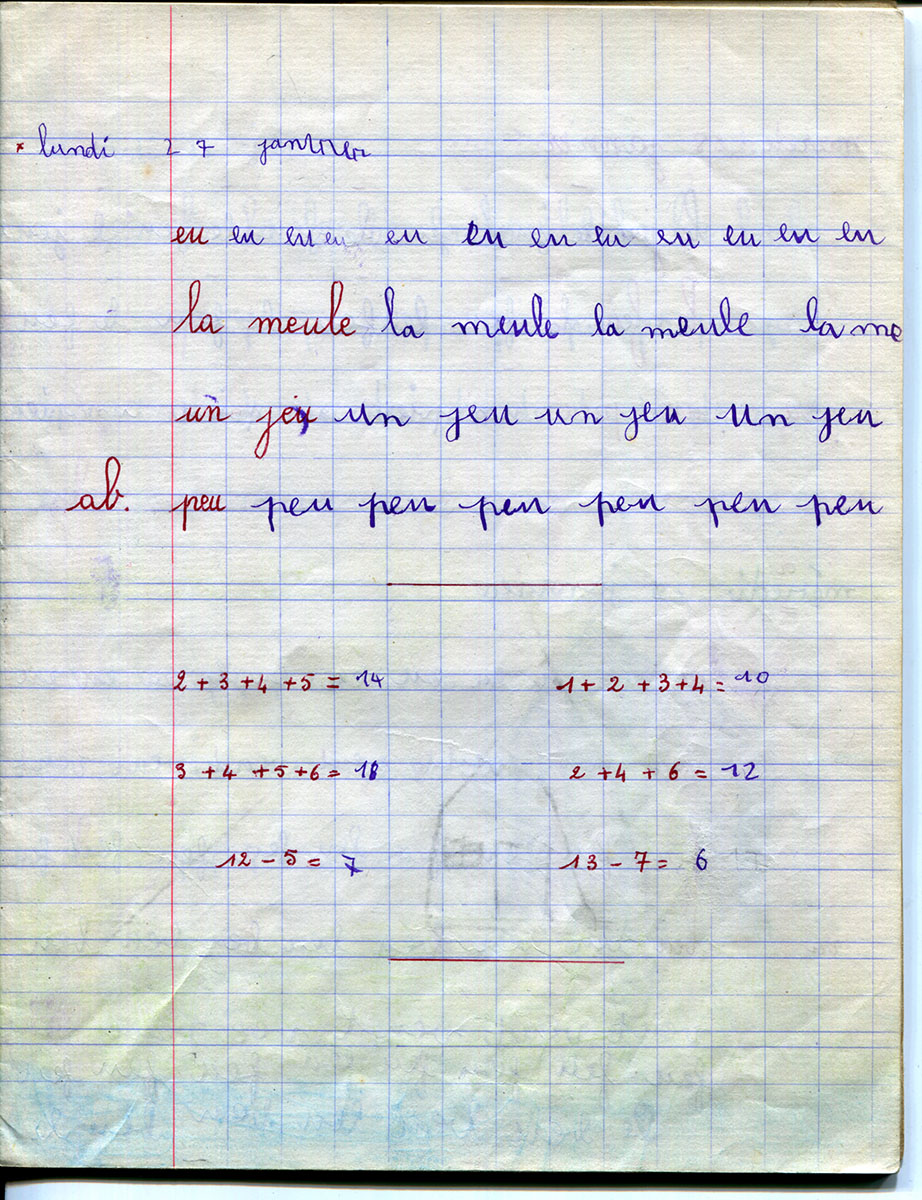 × lundi 27 janvier
eu eu eu eu eu eu eu eu eu eu eu eu
la meule la meule la meule la me
un jeu un jeu un jeu un jeu
ab. peu peu peu peu peu peu peu
2 + 3 + 4 + 5 = 14 1 + 2 + 3 + 4 = 10
3 + 4 + 5 + 6 = 18 2 + 4 + 6 = 12
12 - 5 = 7 13 - 7 = 6